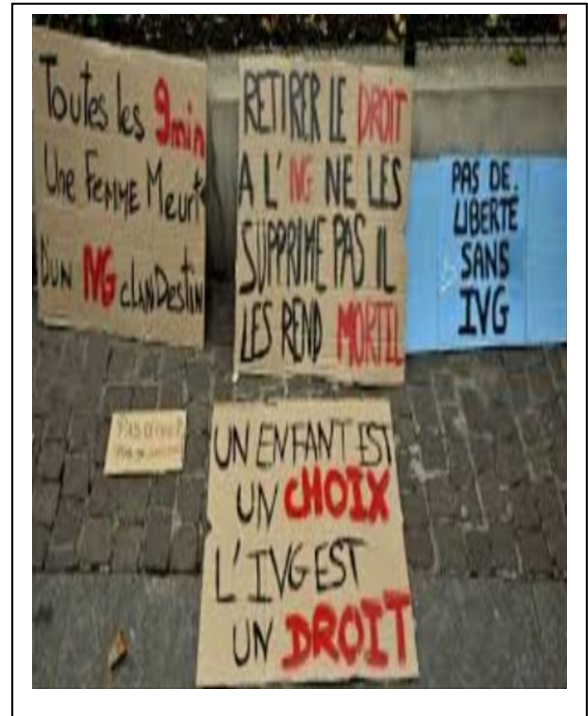 Toutes les 9min
Une FEMME Meurt
DUN IVG clanDestin
RETIRER LE DROIT
A L' IVG NE LES
SUPPRIME PAS IL
LES REND MORTIL
PAS DE.
LIBERTÉ
SANS
IVG
UN ENFANT EST
UN CHOIX
L'IVG EST
UN DROIT